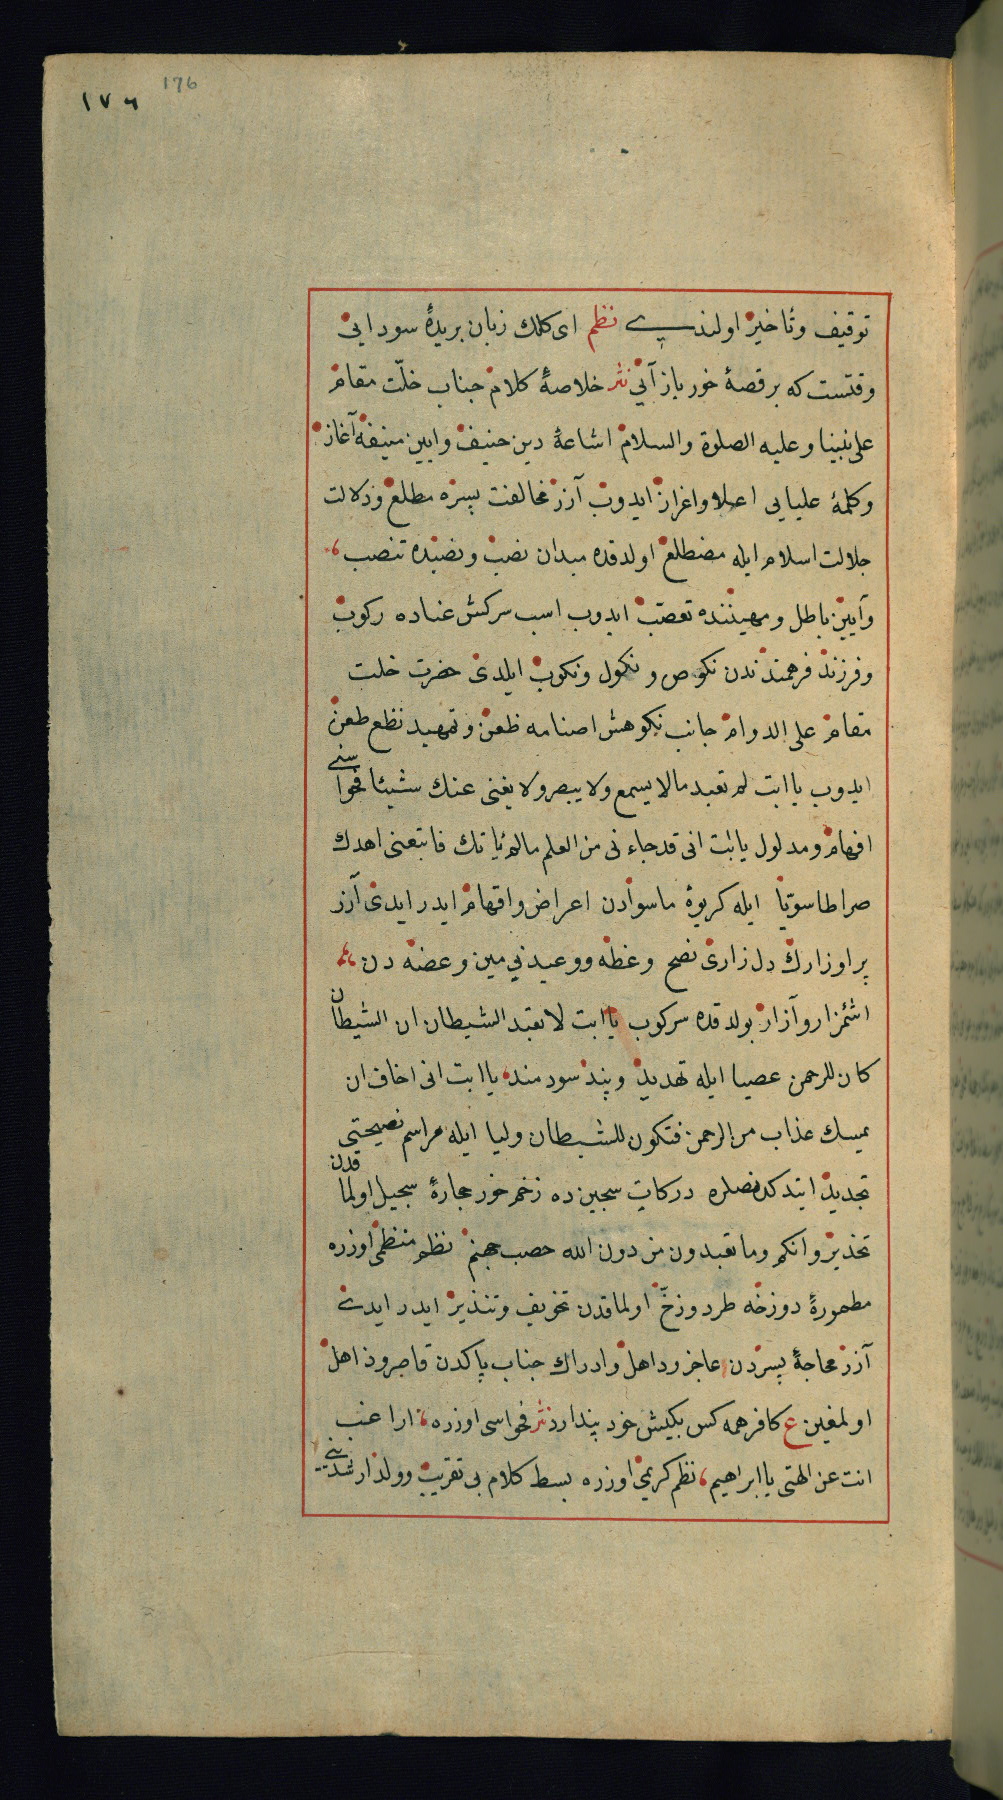 ١٧٦ 176
توقيف وتأخير اولندى نظم اى كلك زبان بريدهٔ سودايى
وقتست كه بر قصهٔ خود باز آيى نثر خلاصهٔ كلام جناب خلّت مقام
على نبينا وعليه الصلوة والسلام اشاعهٔ دين حنيف وآيين منيفه آغاز
وكلمهٔ عليايى اعلا واعزاز ايدوب آزر مخالفت پسره مطلع وزلالت
جلالت اسلام ايله مضطلع اولدقده ميدان نصب ونصبده تنصب
وآيين باطل ومهيننده تعصّب ايدوب اسب سركش عناده ركوب
وفرزند فرهمندندن نكوص ونكول ونكوب ايلدى حضرت خلت
مقام على الدوام جانب نكوهش اصنامه ظعن وتمهيد نطع طعن
ايدوب يا ابت لم تعبد مالا يسمع ولا يبصر ولا يغنى عنك شيئا فحواسنى
افهام ومدلول يا ابت انى قد جاءنى من العلم مالم يأتك فاتبعنى اهدك
صراطا سويّا ايله كريوهٔ ماسوادن اعراض واقهام ايدر ايدى آزر
پر اوزارك دل زارى نصح وعظه ووعيدنى مين وعضه دن
اشئمزاز وآزار بولدقده سركوب يا ابت لا تعبد الشيطان ان الشيطان
كان للرحمن عصيا ايله تهديد وپند سودمند يا ابت انى اخاف ان
يمسك عذاب من الرحمن فتكون للشيطان وليا ايله مراسم نصيحتى
تجديد ايتدكدنصكره دركات سجين ده زخم خور حجارهٔ سجيل اولمقدن
تحذير وانكم وما تعبدون من دون الله حصب جهنم نظم منتظمى اوزره
مطمورهٔ دوزخه طرد وزخّ اولمقدن تخويف وتنذير ايدر ايدى
آزر محاجهٔ پسردن عاجز وداهل وادراك جناب پاكدن قاصر وذاهل
اولمغين ع كافر همه كس بكيش خود پندارد نثر فحواسى اوزره اراغب
انت عن الهتى يا ابراهيم نظم كريمى اوزره بسط كلام بى تقريب وولد ارشدينى